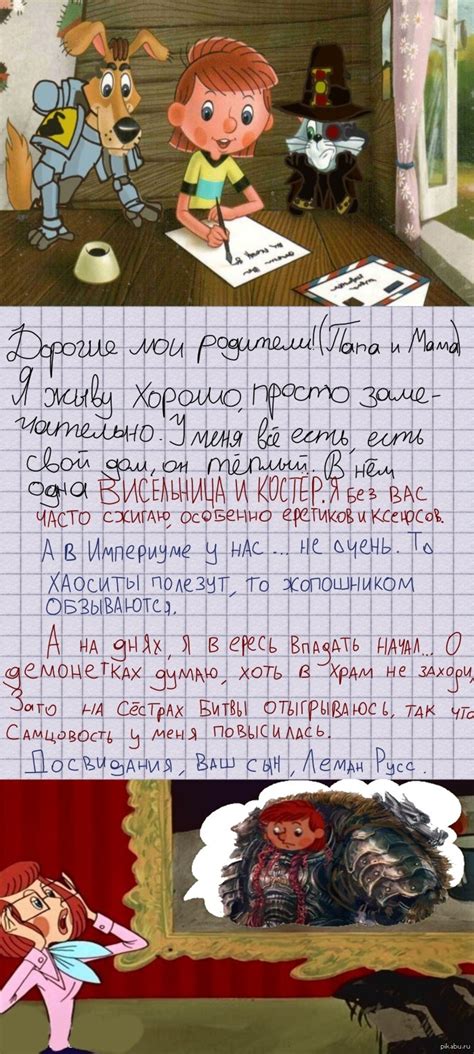 Дорогие мои родители!(Папа и Мама)
Я живу хорошо, просто заме-
чательно. У меня всё есть, есть
свой дом, он тёплый. В нём
одна ВИСЕЛЬНИЦА И КОСТЕР. Я БЕЗ ВАС
ЧАСТО СЖИГАЮ, ОСОБЕННО ЕРЕТИКОВ И КСЕНОСОВ.
А В ИМПЕРИУМЕ У НАС ... НЕ ОЧЕНЬ. ТО
ХАОСИТЫ ПОЛЕЗУТ, ТО ЖОПОШНИКОМ
ОБЗЫВАЮТСЯ.
А НА ДНЯХ, Я В ЕРЕСЬ ВПАДАТЬ НАЧАЛ... О
ДЕМОНЕТКАХ ДУМАЮ, ХОТЬ В ХРАМ НЕ ЗАХОДИ,
ЗАТО НА СЁСТРАХ БИТВЫ ОТЫГРЫВАЮСЬ, ТАК ЧТО
САМЦОВОСТЬ У МЕНЯ ПОВЫСИЛАСЬ.
ДОСВИДАНИЯ, ВАШ СЫН, ЛЕМАН РУСС.
pikabu.ru